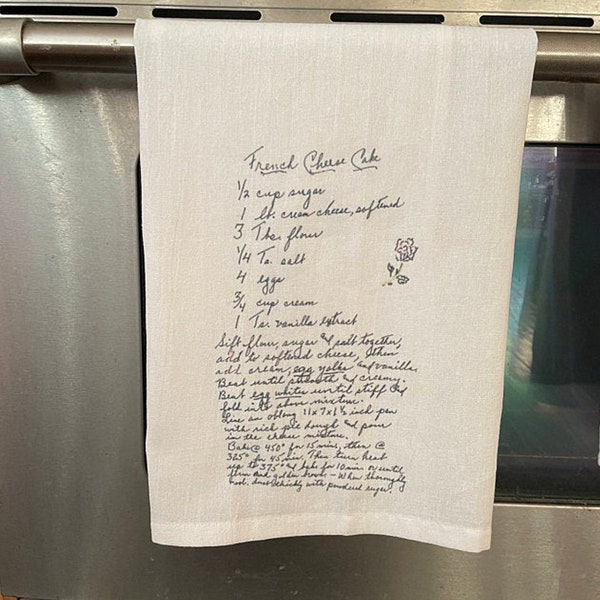 French Cheese Cake
1/2 cup sugar
1 lb. cream cheese, softened
3 Tbs. flour
1/4 Ts. salt
4 eggs
3/4 cup cream
1 Ts. vanilla extract
Sift flour, sugar & salt together,
add to softened cheese, then
add cream, egg yolks and vanilla.
Beat until smooth & creamy.
Beat egg whites until stiff and
fold into above mixture.
Line an oblong 11x7x1 1/2 inch pan
with rich pie dough & pour
in the cheese mixture.
Bake @ 450° for 15 mins, then @
325° for 45 min. Then turn heat
up to 375° & bake for 10 min or until
firm and golden brown - When thoroughly
cool, dust thickly with powdered sugar.